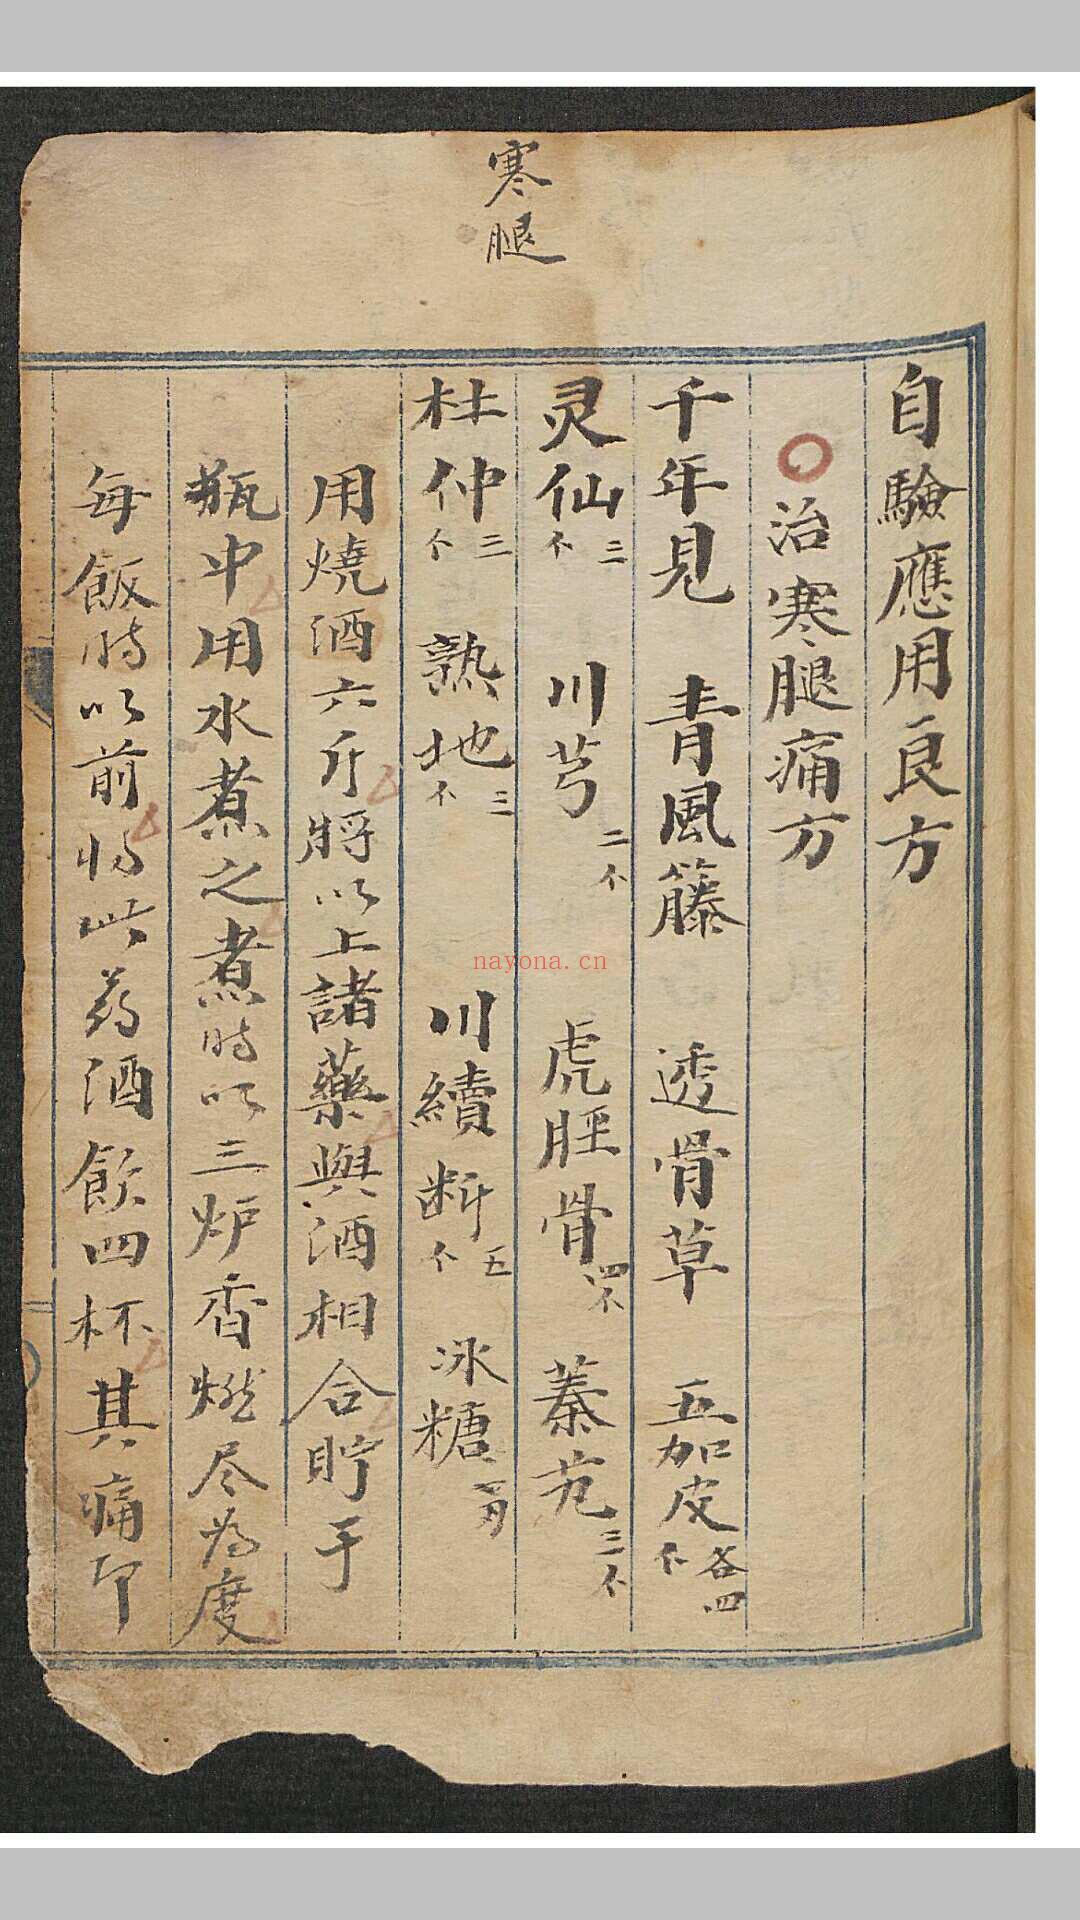 寒腿
自驗應用良方
治寒腿痛方
千年見 青風籐 透骨草 五加皮各四个
灵仙三个 川芎二个 虎脛骨四个 秦艽三个
杜仲三个 熟地三个 川續断五个 冰糖
用燒酒六斤將以上諸藥與酒相合貯于
瓶中用水煮之煮時以三炉香燃尽为度
每飯时以前将此药酒飲四杯其痛即
nayona.cn